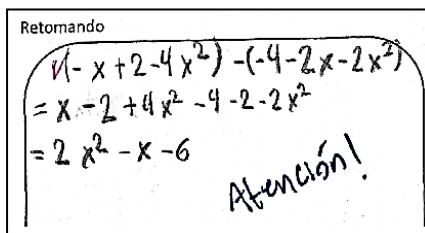 Retomando
√(-x+2-4x²)-(-4-2x-2x²)
= x-2+4x²-4-2-2x²
= 2x²-x-6
Atención!